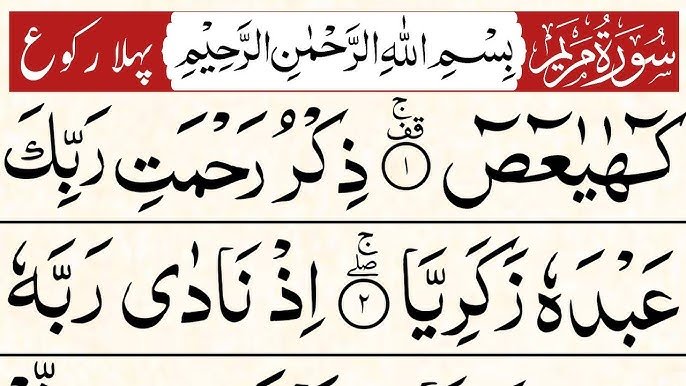 سُورَةُ مَرْيَم بِسْمِ اللهِ الرَّحْمٰنِ الرَّحِيْمِ پہلا رکوع
كٓهٰيٰعٓصٓ ۚقف ۝١ ذِكْرُ رَحْمَتِ رَبِّكَ
عَبْدَهٗ زَكَرِيَّا ۖۚ ۝٢ اِذْ نَادٰى رَبَّهٗ